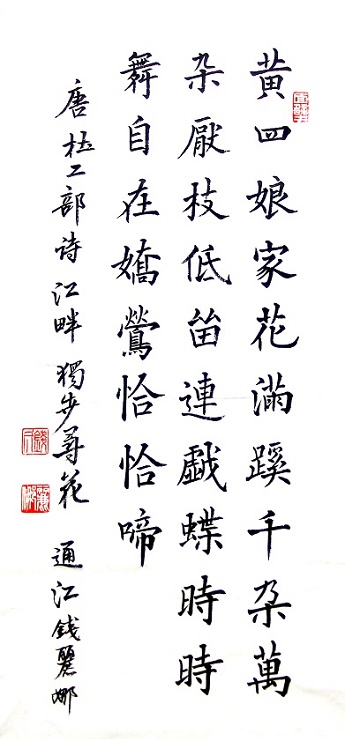 黄四娘家花滿蹊千朶萬
朶厭枝低留連戯蝶時時
舞自在嬌鶯恰恰啼
唐杜工部诗江畔獨步尋花 通江錢麗娜